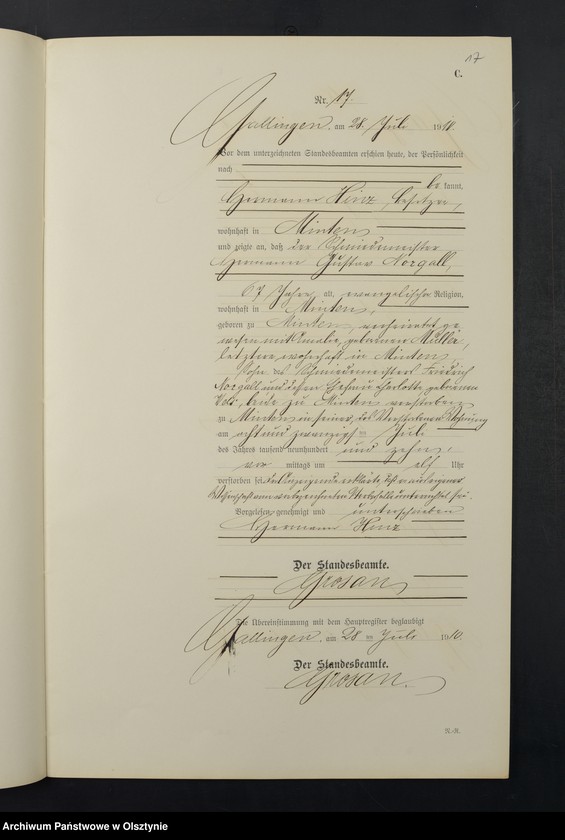 17
C.
Nr. 17.
Gallingen, am 28. Juli 1910.
Vor dem unterzeichneten Standesbeamten erschien heute, der Persönlichkeit
nach
be kannt,
Hermann Hinz, Besitzer,
wohnhaft in Mintens
und zeigte an, daß der Schmiedemeister
Hermann Gustav Norgall,
67 Jahre alt, evangelischer Religion,
wohnhaft in Mintens,
geboren zu Mintens, verheiratet ge
wesen mit Amalie, geborenen Müller,
letztere wohnhaft in Mintens,
Sohn des Schmiedemeisters Friedrich
Norgall und dessen Ehefrau Charlotte geborenen
beide zu Mintens verstorben
zu Mintens in seiner, des Verstorbenen Wohnung
am acht und zwanzigsten Juli
des Jahres tausend neunhundert und zehn,
vor mittags um elf Uhr
verstorben sei. Der Anzeigende erklärte, daß er aus eigener
Wissenschaft von vorbezeichneten Sterbefalle unterrichtet sei.
Vorgelesen, genehmigt und unterschrieben
Hermann Hinz
Der Standesbeamte.
Grosan
Die Übereinstimmung mit dem Hauptregister beglaubigt
Gallingen, am 28 ten Juli 1910.
Der Standesbeamte.
Grosan.
N.-R.
Archiwum Państwowe w Olsztynie